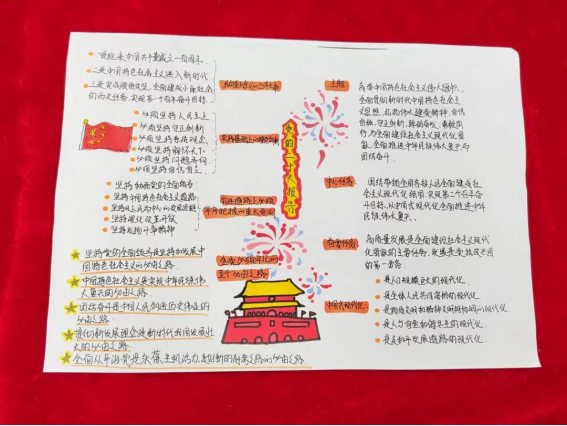 一是迎来中国共产党成立一百周年
二是中国特色社会主义进入新时代
三是完成脱贫攻坚、全面建成小康社会
的历史任务，实现第一个百年奋斗目标。
必须坚持人民至上
必须坚持守正创新
必须坚持系统观念
必须坚持胸怀天下
必须坚持问题导向
必须坚持自信自立
坚持和加强党的全面领导
坚持中国特色社会主义道路
坚持以人民为中心的发展思想
坚持深化改革开放
坚持发扬斗争精神
坚持党的全面领导是坚持和发展中
国特色社会主义的必由之路
中国特色社会主义是实现中华民族伟
大复兴的必由之路
团结奋斗是中国人民创造历史伟业的
必由之路
贯彻新发展理念是新时代我国发展壮
大的必由之路
全面从严治党是永葆生机活力、走好新的赶考之路的必由之路
党的二十大报告
主题
高举中国特色社会主义伟大旗帜，
全面贯彻新时代中国特色社会主
义思想，弘扬伟大建党精神，自信
自强、守正创新，踔厉奋发、勇毅前
行，为全面建设社会主义现代化国
家、全面推进中华民族伟大复兴而
团结奋斗。
中心任务
团结带领全国各族人民全面建成社
会主义现代化强国、实现第二个百年奋
斗目标，以中国式现代化全面推进中华
民族伟大复兴。
首要任务
高质量发展是全面建设社会主义现代
化国家的首要任务，发展是党执政兴国
的第一要务。
中国式现代化
是人口规模巨大的现代化。
是全体人民共同富裕的现代化。
是物质文明和精神文明相协调的现代化。
是人与自然和谐共生的现代化。
是走和平发展道路的现代化。